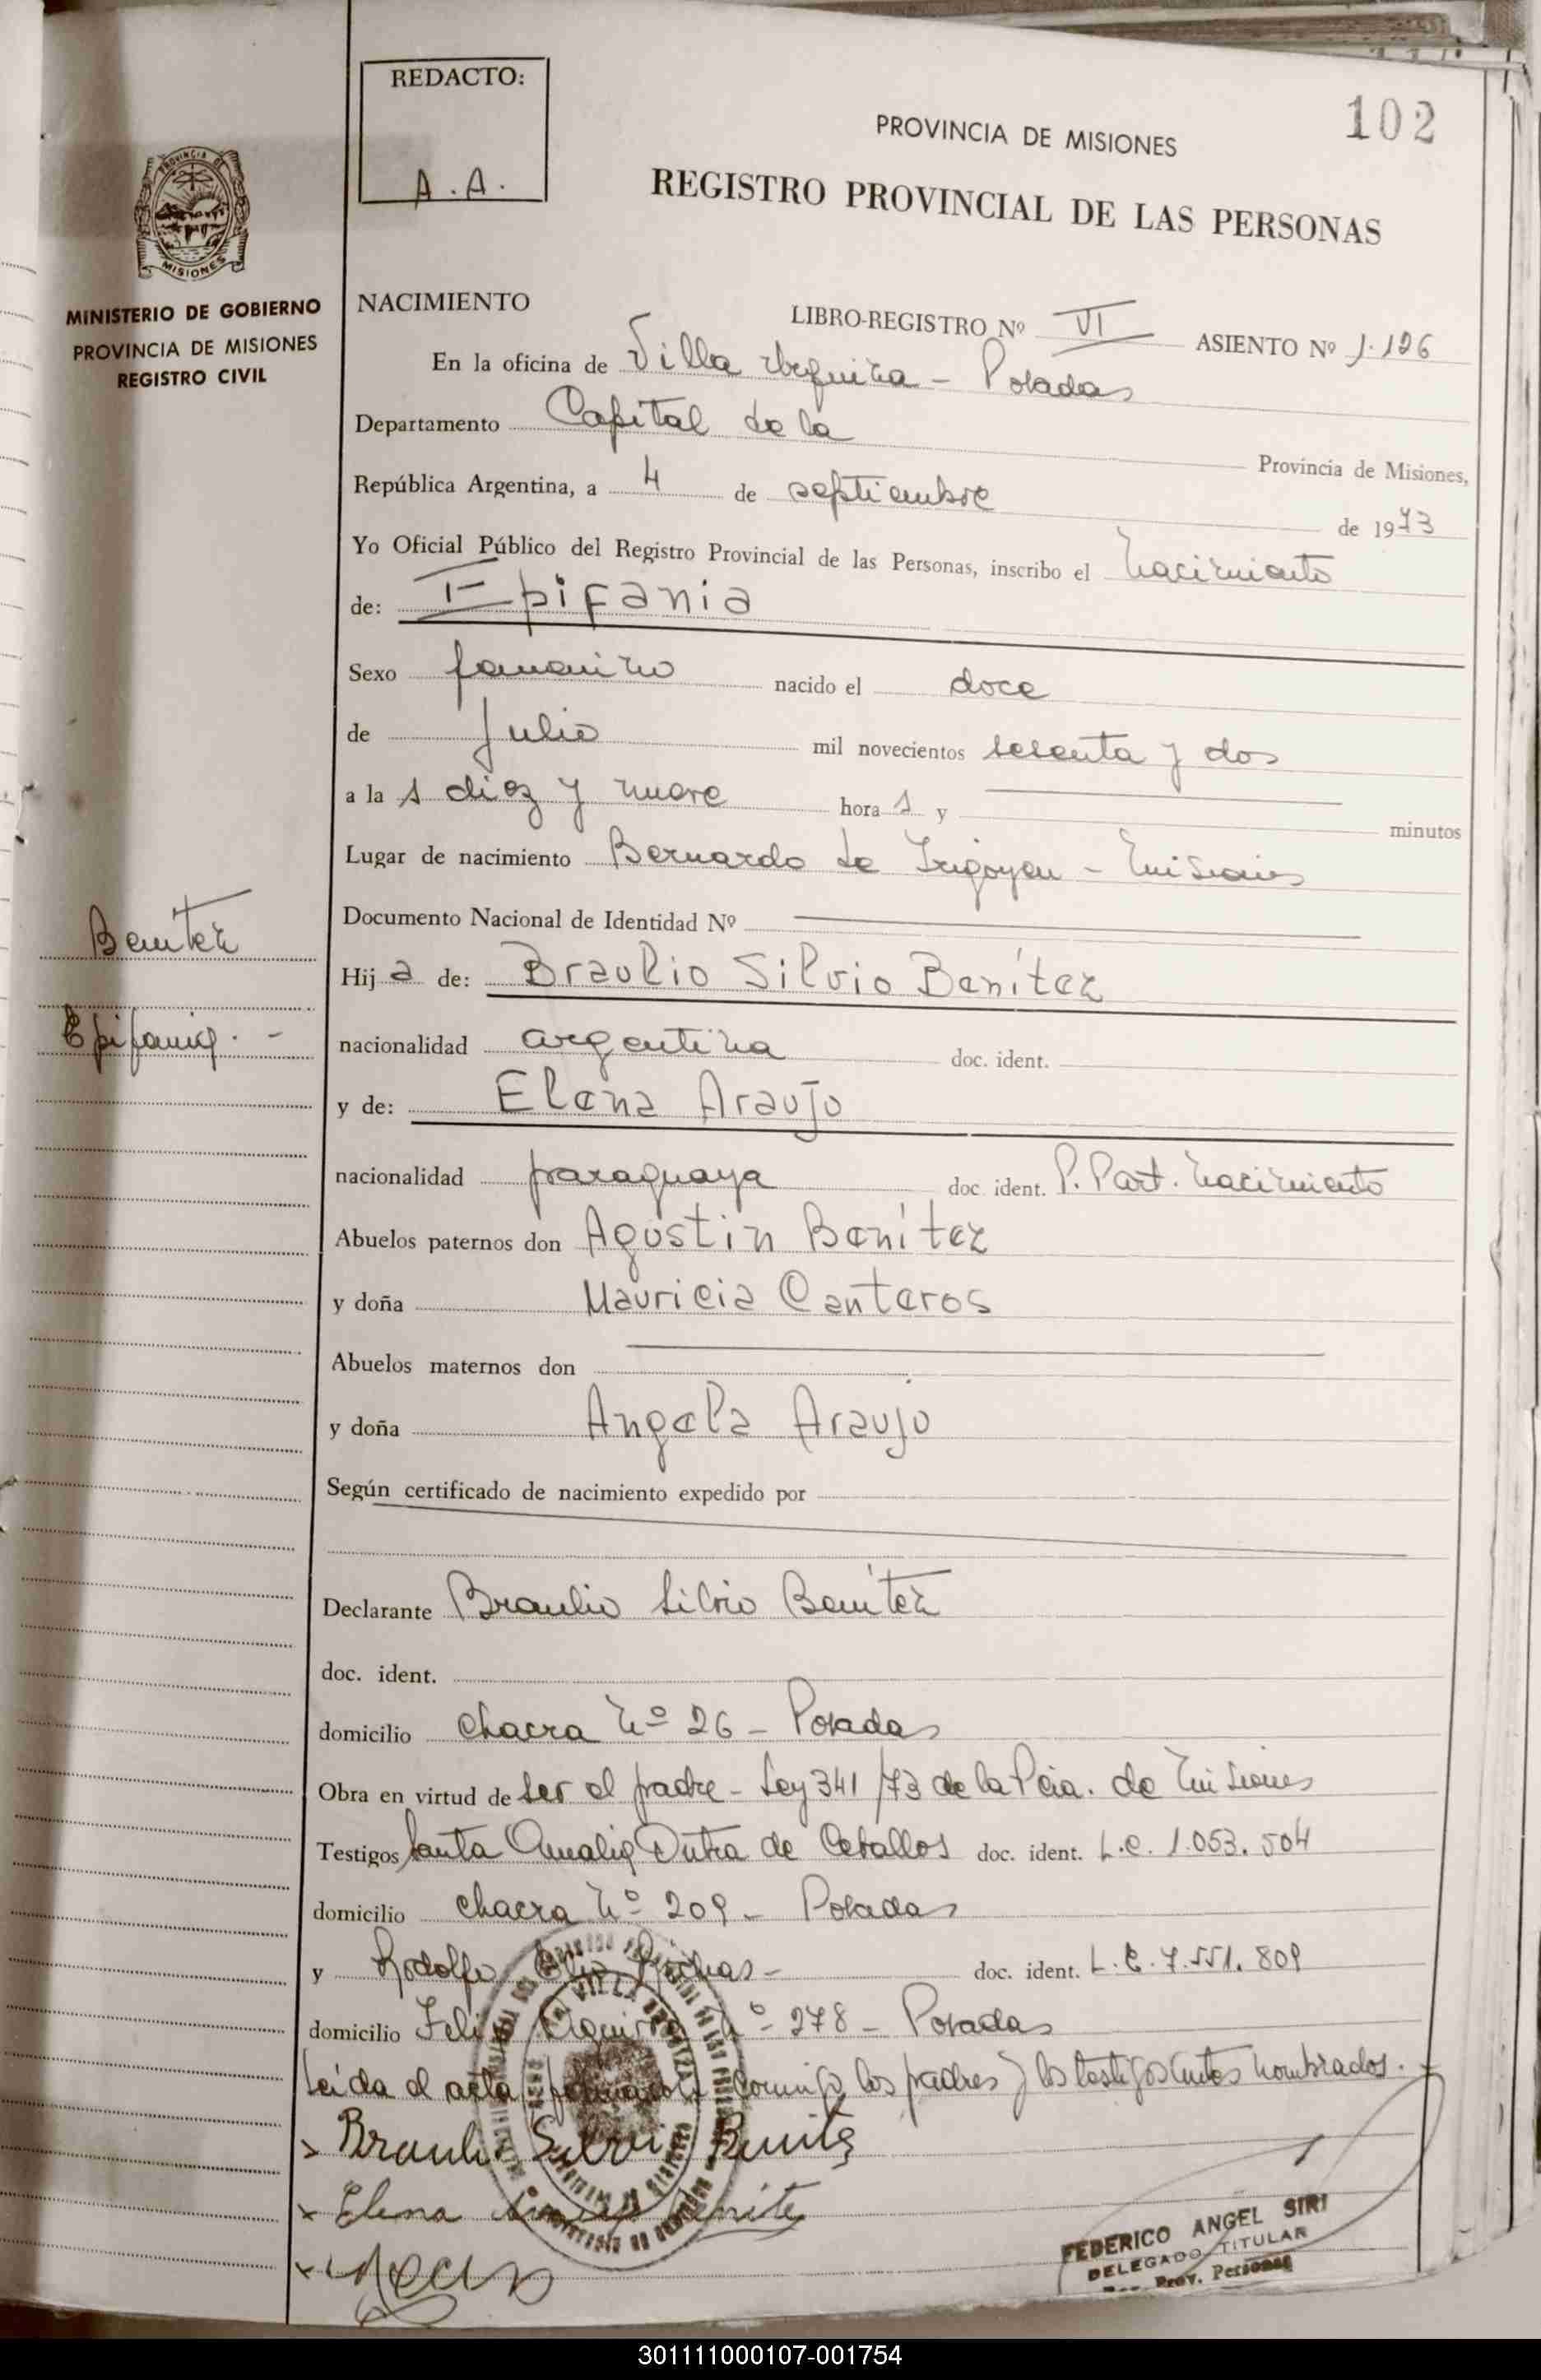 REDACTO:
A. A.
PROVINCIA DE MISIONES
102
REGISTRO PROVINCIAL DE LAS PERSONAS
PROVINCIA DE
MISIONES
MINISTERIO DE GOBIERNO
PROVINCIA DE MISIONES
REGISTRO CIVIL
NACIMIENTO
LIBRO-REGISTRO Nº VI ASIENTO Nº 1.126
En la oficina de Villa Urquiza - Posadas
Departamento Capital de la Provincia de Misiones,
República Argentina, a 4 de septiembre de 1973
Yo Oficial Público del Registro Provincial de las Personas, inscribo el nacimiento
de: Epifania
Sexo femenino nacido el doce
de Julio mil novecientos sesenta y dos
a la s diez y nueve hora s y minutos
Lugar de nacimiento Bernardo de Irigoyen - Misiones
Documento Nacional de Identidad Nº
Benítez
Hij a de: Braulio Silvio Benítez
Epifania. -
nacionalidad argentina doc. ident.
y de: Elena Araujo
nacionalidad paraguaya doc. ident. P. Part. nacimiento
Abuelos paternos don Agustin Benítez
y doña Mauricia Canteros
Abuelos maternos don
y doña Angela Araujo
Según certificado de nacimiento expedido por
Declarante Braulio Silvio Benítez
doc. ident.
domicilio chacra Nº 26 - Posadas
Obra en virtud de ser el padre - Ley 341/73 de la Pcia. de Misiones
Testigos Santa Amalia Dutra de Ceballos doc. ident. L.C. 1.053.504
domicilio chacra Nº 209 - Posadas
y Rodolfo doc. ident. L.E. 7.551.809
domicilio Aguirre Nº 278 - Posadas
Leída el acta conmigo los padres y los testigos antes nombrados. -
Braulio Silvio Benites
Elena
FEDERICO ANGEL SIRI
DELEGADO TITULAR
Prov. Personas
301111000107-001754